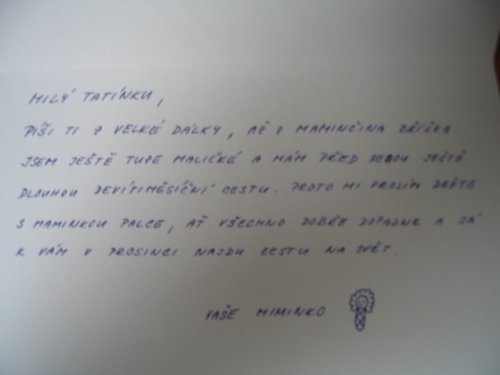 MILÝ TATÍNKU,
PÍŠI TI Z VELKÉ DÁLKY, AŽ Z MAMINČINA BŘÍŠKA.
JSEM JEŠTĚ TUZE MALIČKÉ A MÁM PŘED SEBOU JEŠTĚ
DLOUHOU DEVÍTIMĚSÍČNÍ CESTU. PROTO MI PROSÍM DRŽTE
S MAMINKOU PALCE, AŤ VŠECHNO DOBŘE DOPADNE A JÁ
K VÁM V PROSINCI NAJDU CESTU NA SVĚT.
VAŠE MIMINKO